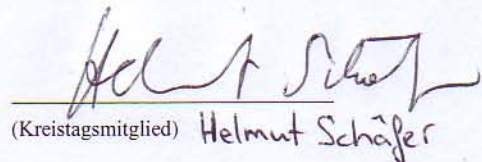 Helmut Schäfer
(Kreistagsmitglied) Helmut Schäfer